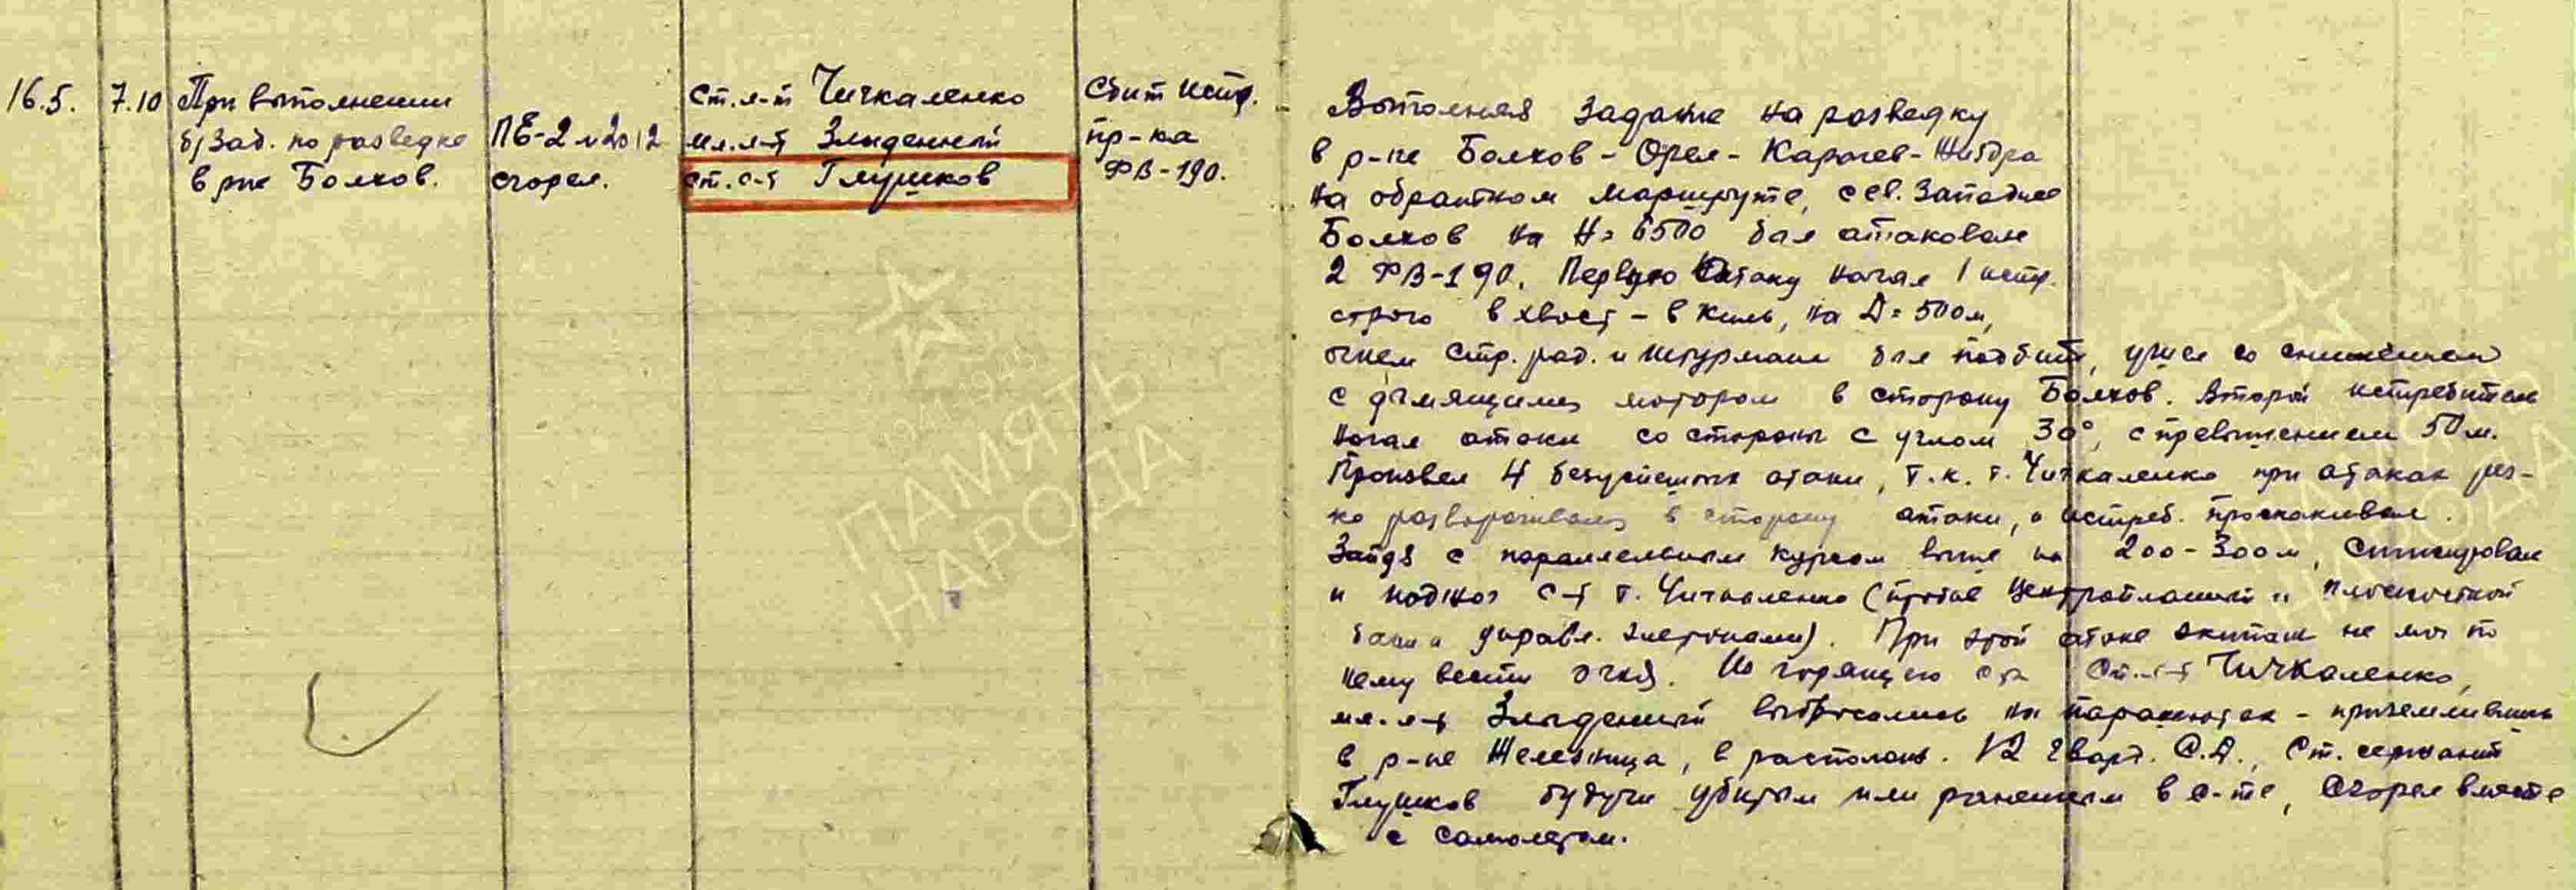 16.5.
7.10
При выполнении
б/зад. по разведке
в рне Болхов.
ПЕ-2 №2012
сгорел.
ст. л-т Чичкаленко
мл. л-т Злыденный
ст. с-т Глушков
Сбит истр.
пр-ка
ФВ-190.
Выполняя задание на разведку
в р-не Болхов - Орел - Карачев - Жиздра
на обратном маршруте, сев. западнее
Болхов на Н= 6500 был атакован
2 ФВ-190. Первую атаку начал 1 истр.
строго в хвост - в киль, на Д= 500м,
огнем стр. рад. и штурмана был подбит, ушел со снижением
с дымящимся мотором в сторону Болхов. Второй истребитель
начал атаки со стороны с углом 30°, с превышением 50м.
Произвел 4 безуспешных атаки, т.к. т. Чичкаленко при атаках рез-
ко разворачивался в сторону атаки, а истреб. проскакивал.
Зайдя с параллельным курсом выше на 200-300м, спикировал
и поджог с-т т. Чичкаленко (пробив центропланный и плоскостной
баки и управл. элеронами). При этой атаке экипаж не мог по
нему вести огня. Из горящего с-та Ст. л-т Чичкаленко,
мл. л-т Злыденный выбросились на парашютах - приземлившись
в р-не Железница, в располож. 12 Гвард. С.Д., Ст. сержант
Глушков будучи убитым или раненым в с-те, сгорел вместе
с самолетом.
ПАМЯТЬ
НАРОДА